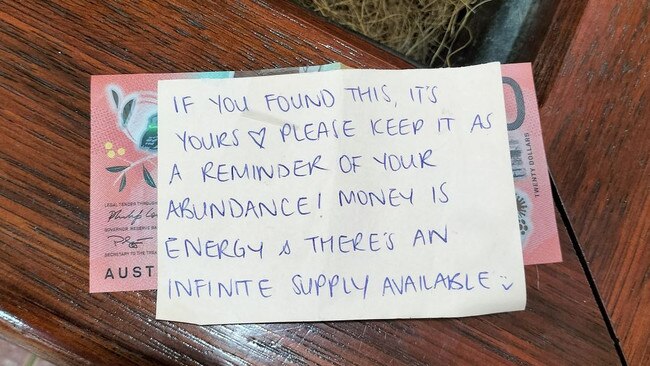 IF YOU FOUND THIS, IT'S
YOURS ♡ PLEASE KEEP IT AS
A REMINDER OF YOUR
ABUNDANCE! MONEY IS
ENERGY & THERE'S AN
INFINITE SUPPLY AVAILABLE
LEGAL TENDER THROUGH
GOVERNOR RESERVE BA
SECRETARY TO THE TREA
AUST
TWENTY DOLLARS